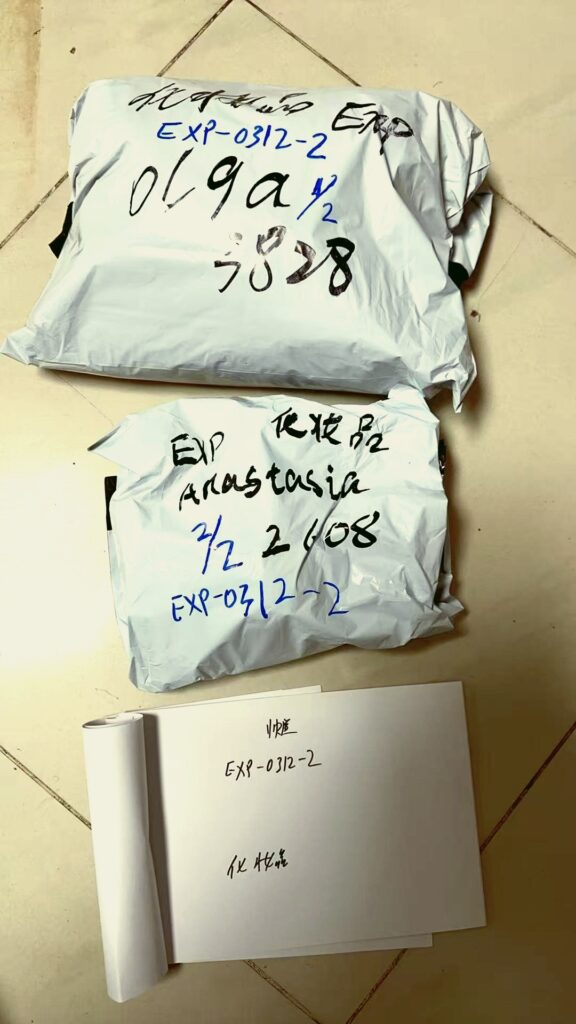 化妆品 EXP
EXP-0312-2
Olga 1/2
3828
EXP 化妆品
Anastasia
2/2 2608
EXP-0312-2
EXP-0312-2
化妆品